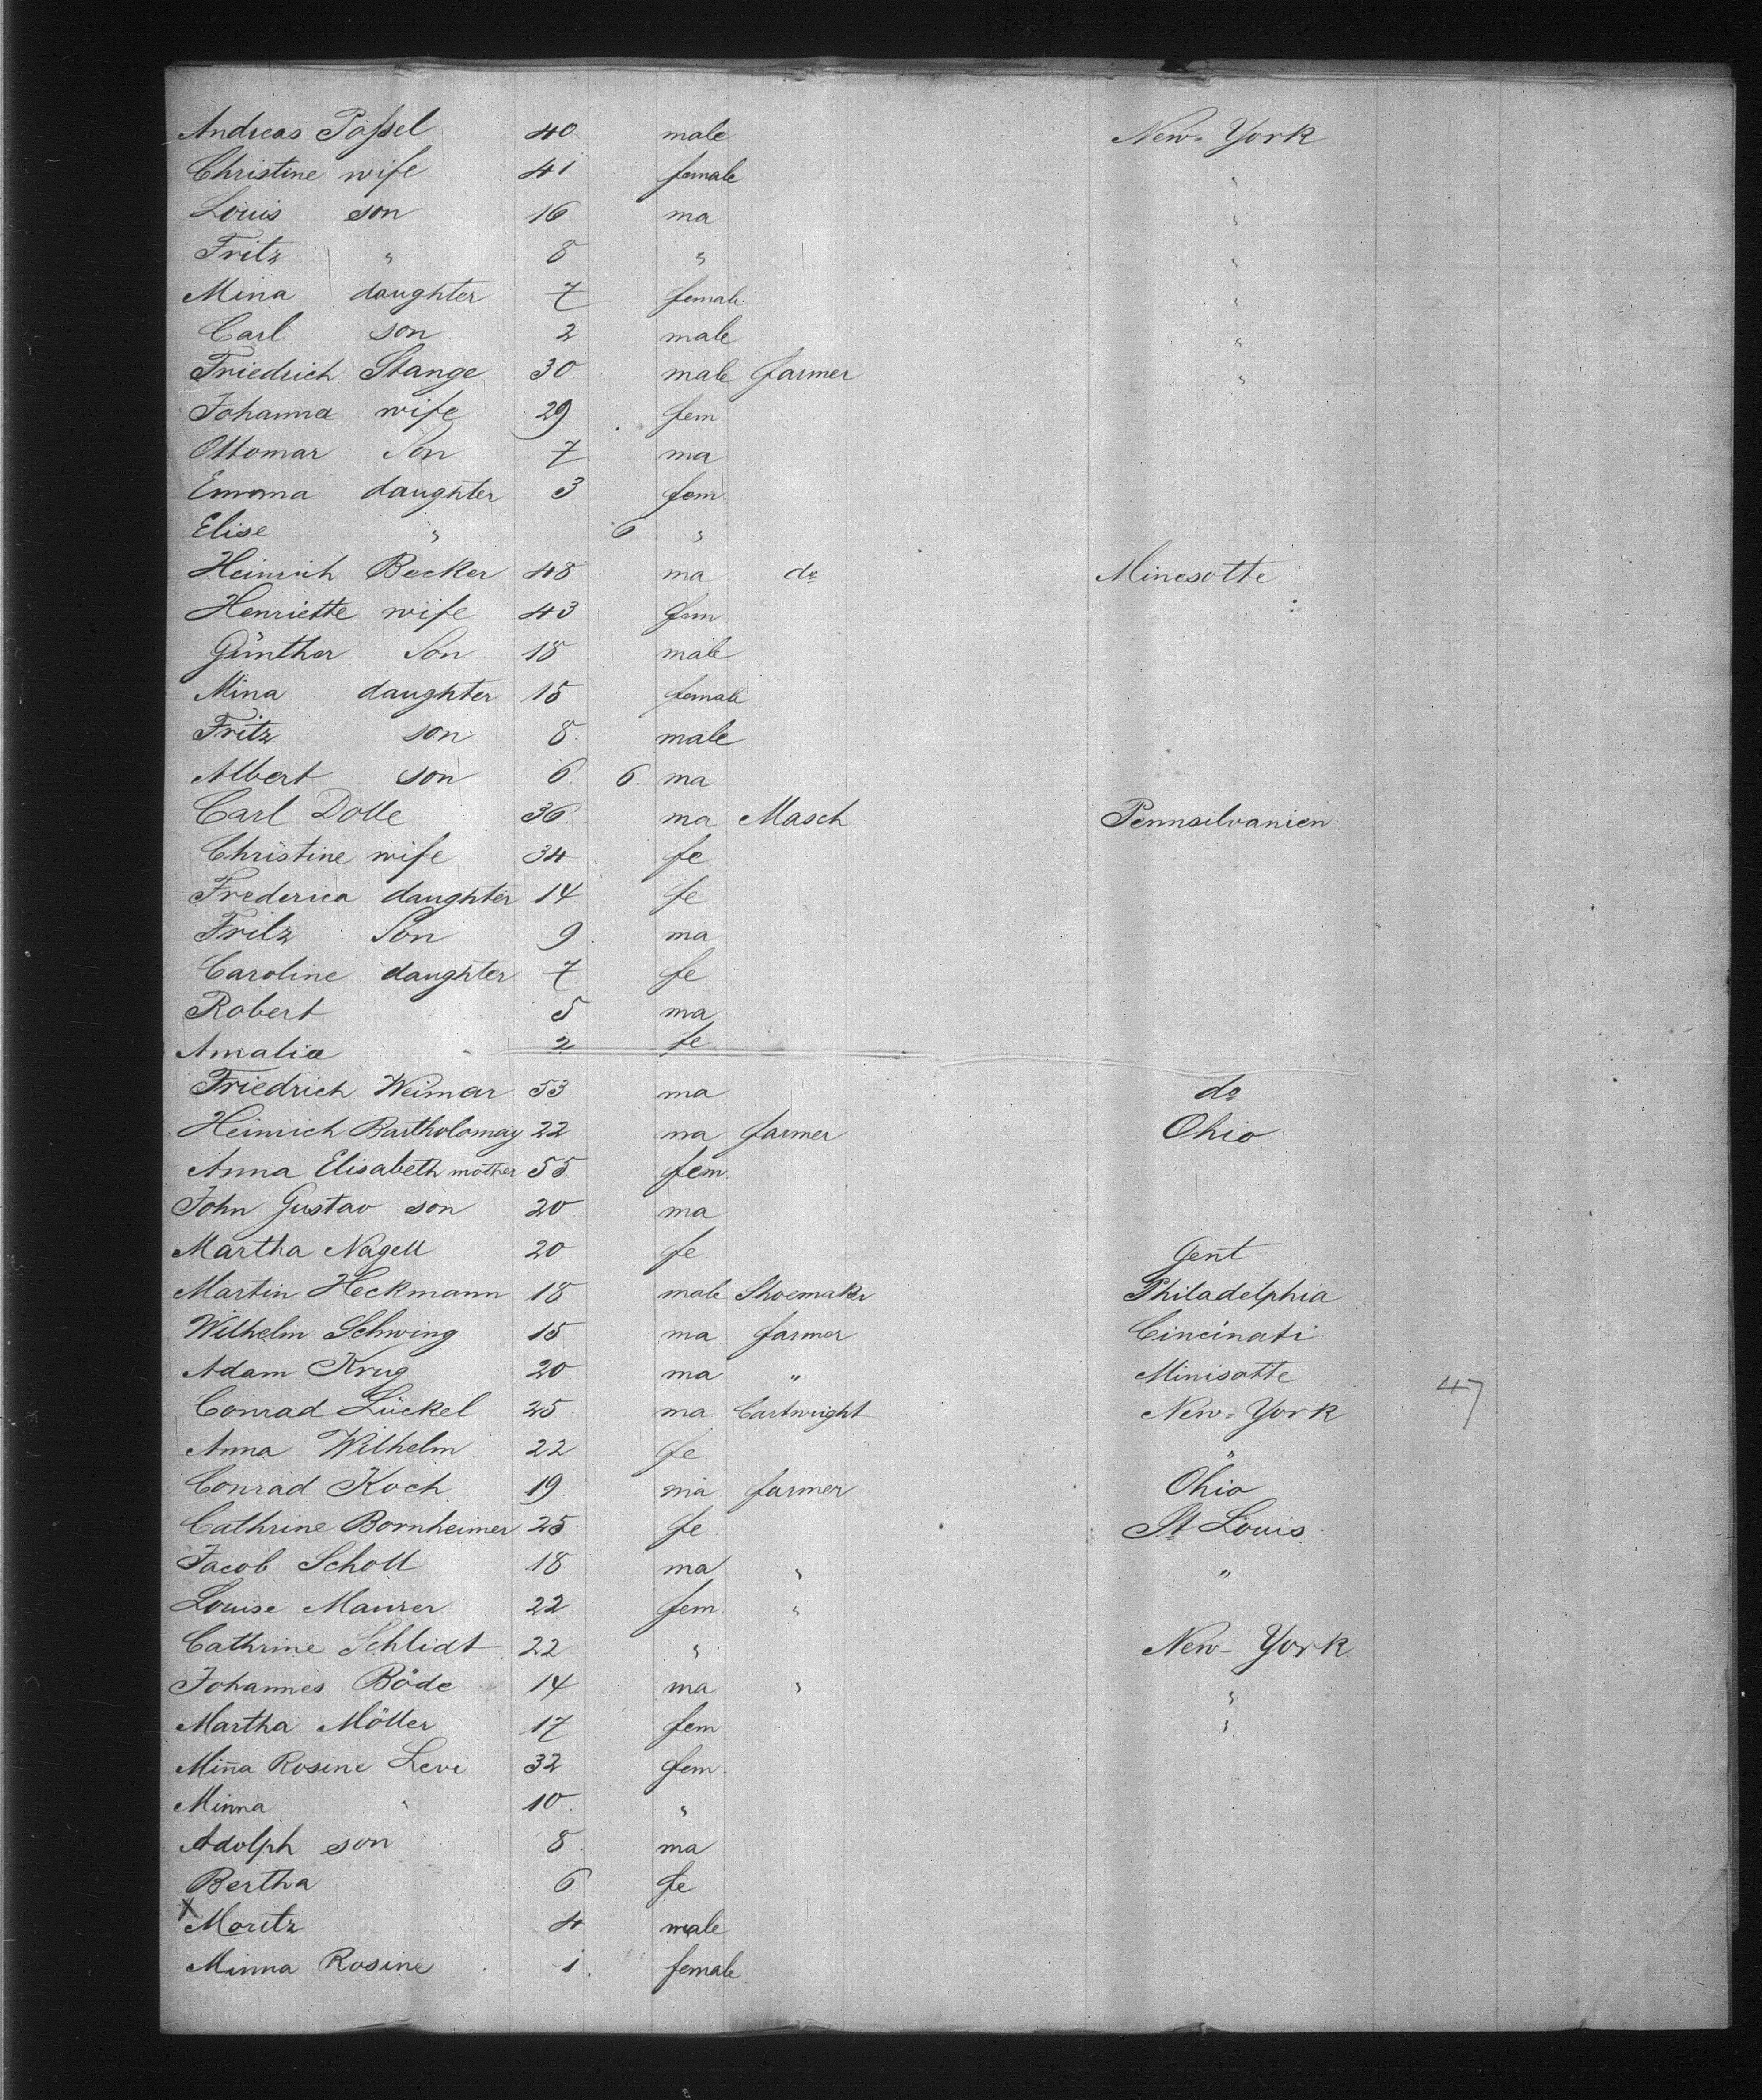 Andreas Paſsel 40 male New-York
Christine wife 41 female "
Louis son 16 ma "
Fritz " 8 " "
Mina daughter 7 female "
Carl son 2 male "
Friedrich Stange 30 male farmer "
Johanna wife 29 fem
Ottomar Son 7 ma
Emma daughter 3 fem
Elise " 6 "
Heinrich Becker 48 ma do Minesotte
Henriette wife 43 fem
Günther Son 18 male
Mina daughter 15 female
Fritz son 8 male
Albert son 6 6 ma
Carl Dolle 36 ma Masch Pennsilvanien
Christine wife 34 fe
Frederica daughter 14 fe
Fritz Son 9 ma
Caroline daughter 7 fe
Robert 5 ma
Amalia 2 fe
Friedrich Weimar 53 ma do
Heinrich Bartholomay 22 ma farmer Ohio
Anna Elisabeth mother 55 fem
John Gustav son 20 ma
Martha Nagell 20 fe Gent
Martin Heckmann 18 male Shoemaker Philadelphia
Wilhelm Schwing 15 ma farmer Cincinati
Adam Krug 20 ma " Minisotte
47
Conrad Lückel 25 ma Cartwright New-York
Anna Wilhelm 22 fe "
Conrad Koch 19 ma farmer Ohio
Cathrine Bornheimer 25 fe St Louis
Jacob Scholl 18 ma " "
Louise Maurer 22 fem "
Cathrine Schlidt 22 " New-York
Johannes Böde 14 ma " "
Martha Möller 17 fem "
Miña Rosine Levi 32 fem
Minna " 10 "
Adolph son 8 ma
Bertha 6 fe
X Moritz 4 male
Minna Rosine 1 female